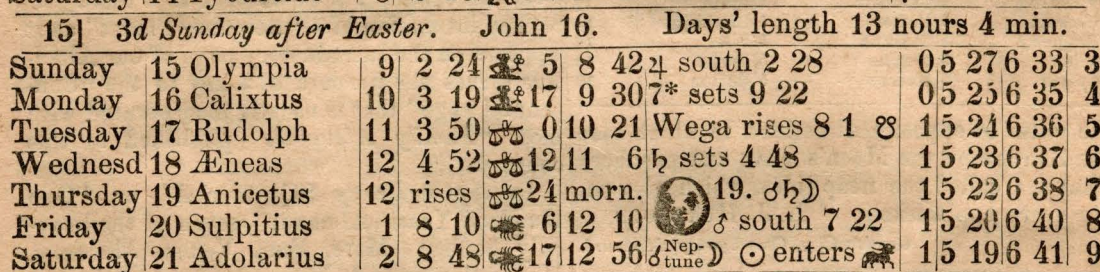 15] 3d Sunday after Easter. John 16. Days' length 13 nours 4 min.
Sunday 15 Olympia 9 2 24 ♍ 5 8 42 ♃ south 2 28 0 5 27 6 33 3
Monday 16 Calixtus 10 3 19 ♍ 17 9 30 7* sets 9 22 0 5 25 6 35 4
Tuesday 17 Rudolph 11 3 50 ♎ 0 10 21 Wega rises 8 1 ☋ 1 5 24 6 36 5
Wednesd 18 Æneas 12 4 52 ♎ 12 11 6 ♄ sets 4 48 1 5 23 6 37 6
Thursday 19 Anicetus 12 rises ♎ 24 morn. 19. ☌♄☽ 1 5 22 6 38 7
Friday 20 Sulpitius 1 8 10 ♏ 6 12 10 ♂ south 7 22 1 5 20 6 40 8
Saturday 21 Adolarius 2 8 48 ♏ 17 12 56 ☌ Nep-tune ☽ ☉ enters ♉ 1 5 19 6 41 9